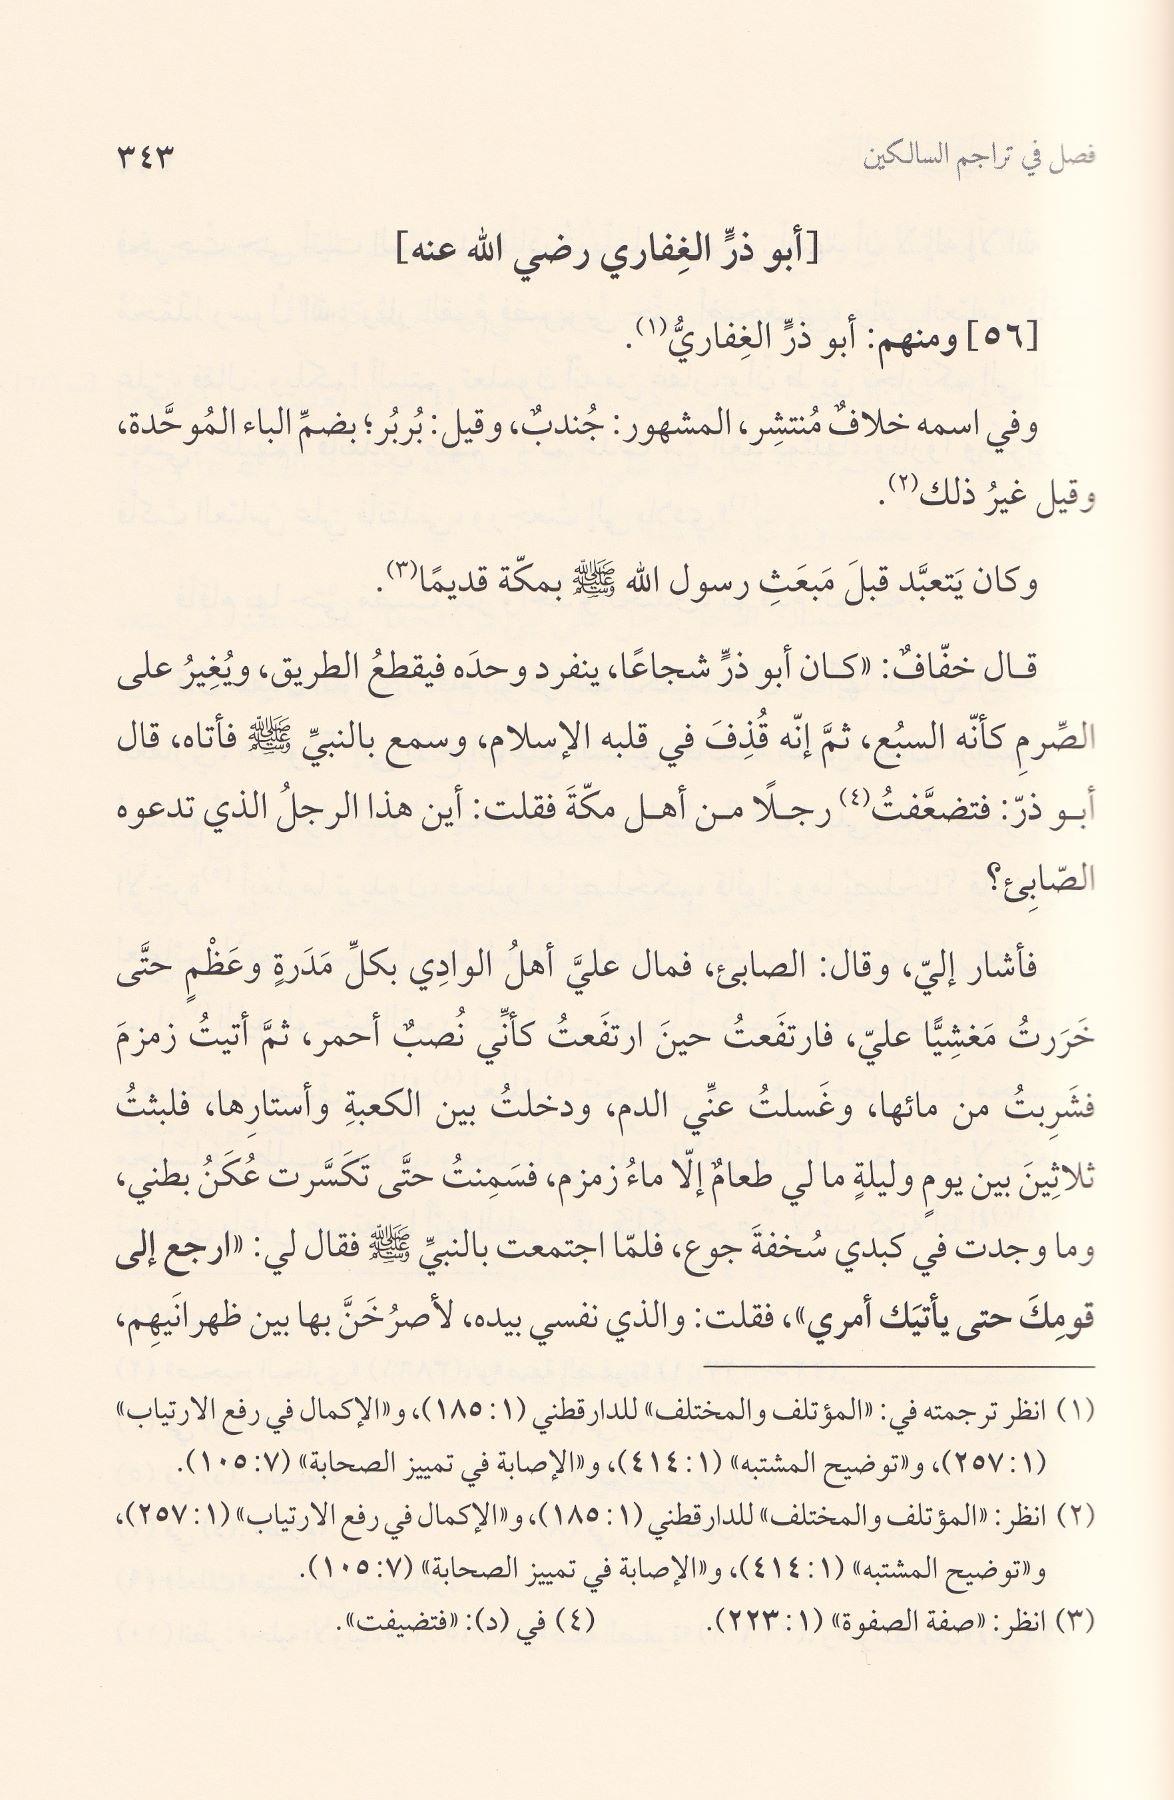 فصل في تراجم السالكين
٣٤٣
[أبو ذرٍّ الغِفاري رضي الله عنه]
[٥٦] ومنهم: أبو ذرٍّ الغِفاريُّ(١).
وفي اسمه خلافٌ مُنتشِر، المشهور: جُندبٌ، وقيل: بُربُر؛ بضمِّ الباء المُوحَّدة،
وقيل غيرُ ذلك(٢).
وكان يَتعبَّد قبلَ مَبعَثِ رسول الله ﷺ بمكّة قديمًا(٣).
قال خفّافٌ: «كان أبو ذرٍّ شجاعًا، ينفرد وحدَه فيقطعُ الطريق، ويُغِيرُ على
الصِّرمِ كأنّه السبُع، ثمَّ إنّه قُذِفَ في قلبه الإسلام، وسمع بالنبيِّ ﷺ فأتاه، قال
أبو ذرّ: فتضعَّفتُ(٤) رجلًا من أهل مكّةَ فقلت: أين هذا الرجلُ الذي تدعوه
الصّابِئ؟
فأشار إليّ، وقال: الصابئ، فمال عليَّ أهلُ الوادِي بكلِّ مَدَرةٍ وعَظْمٍ حتَّى
خَرَرتُ مَغشِيًّا عليّ، فارتفَعتُ حينَ ارتفَعتُ كأنِّي نُصبٌ أحمر، ثمَّ أتيتُ زمزمَ
فشَرِبتُ من مائها، وغَسلتُ عنِّي الدم، ودخلتُ بين الكعبةِ وأستارِها، فلبثتُ
ثلاثِينَ بين يومٍ وليلةٍ ما لي طعامٌ إلّا ماءُ زمزم، فسَمِنتُ حتَّى تَكَسَّرت عُكَنُ بطني،
وما وجدت في كبدي سُخفةَ جوع، فلمّا اجتمعت بالنبيِّ ﷺ فقال لي: «ارجع إلى
قومِكَ حتى يأتيَك أمري»، فقلت: والذي نفسي بيده، لأصرُخَنَّ بها بين ظهرانَيهِم،
(١) انظر ترجمته في: «المؤتلف والمختلف» للدارقطني (١: ١٨٥)، و«الإكمال في رفع الارتياب»
(١: ٢٥٧)، و«توضيح المشتبه» (١: ٤١٤)، و«الإصابة في تمييز الصحابة» (٧: ١٠٥).
(٢) انظر: «المؤتلف والمختلف» للدارقطني (١: ١٨٥)، و«الإكمال في رفع الارتياب» (١: ٢٥٧)،
و«توضيح المشتبه» (١: ٤١٤)، و«الإصابة في تمييز الصحابة» (٧: ١٠٥).
(٣) انظر: «صفة الصفوة» (١: ٢٢٣). (٤) في (د): «فتضيفت».